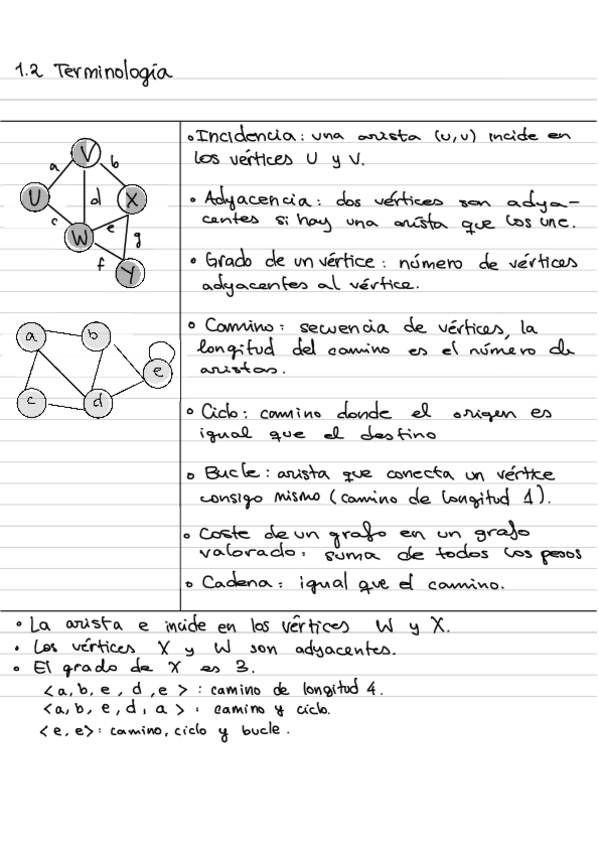 1.2 Terminología
• Incidencia: una arista (u,v) incide en
los vértices U y V.
• Adyacencia: dos vértices son adya-
centes si hay una arista que los une.
• Grado de un vértice: número de vértices
adyacentes al vértice.
• Camino: secuencia de vértices, la
longitud del camino es el número de
aristas.
• Ciclo: camino donde el origen es
igual que el destino
• Bucle: arista que conecta un vértice
consigo mismo (camino de longitud 1).
• Coste de un grafo en un grafo
valorado: suma de todos los pesos
• Cadena: igual que el camino.
V
a b
U d X
c W e g
f Y
a b
e
c d
• La arista e incide en los vértices W y X.
• Los vértices X y W son adyacentes.
• El grado de X es 3.
<a, b, e, d, e> : camino de longitud 4.
<a, b, e, d, a> : camino y ciclo.
<e, e>: camino, ciclo y bucle.